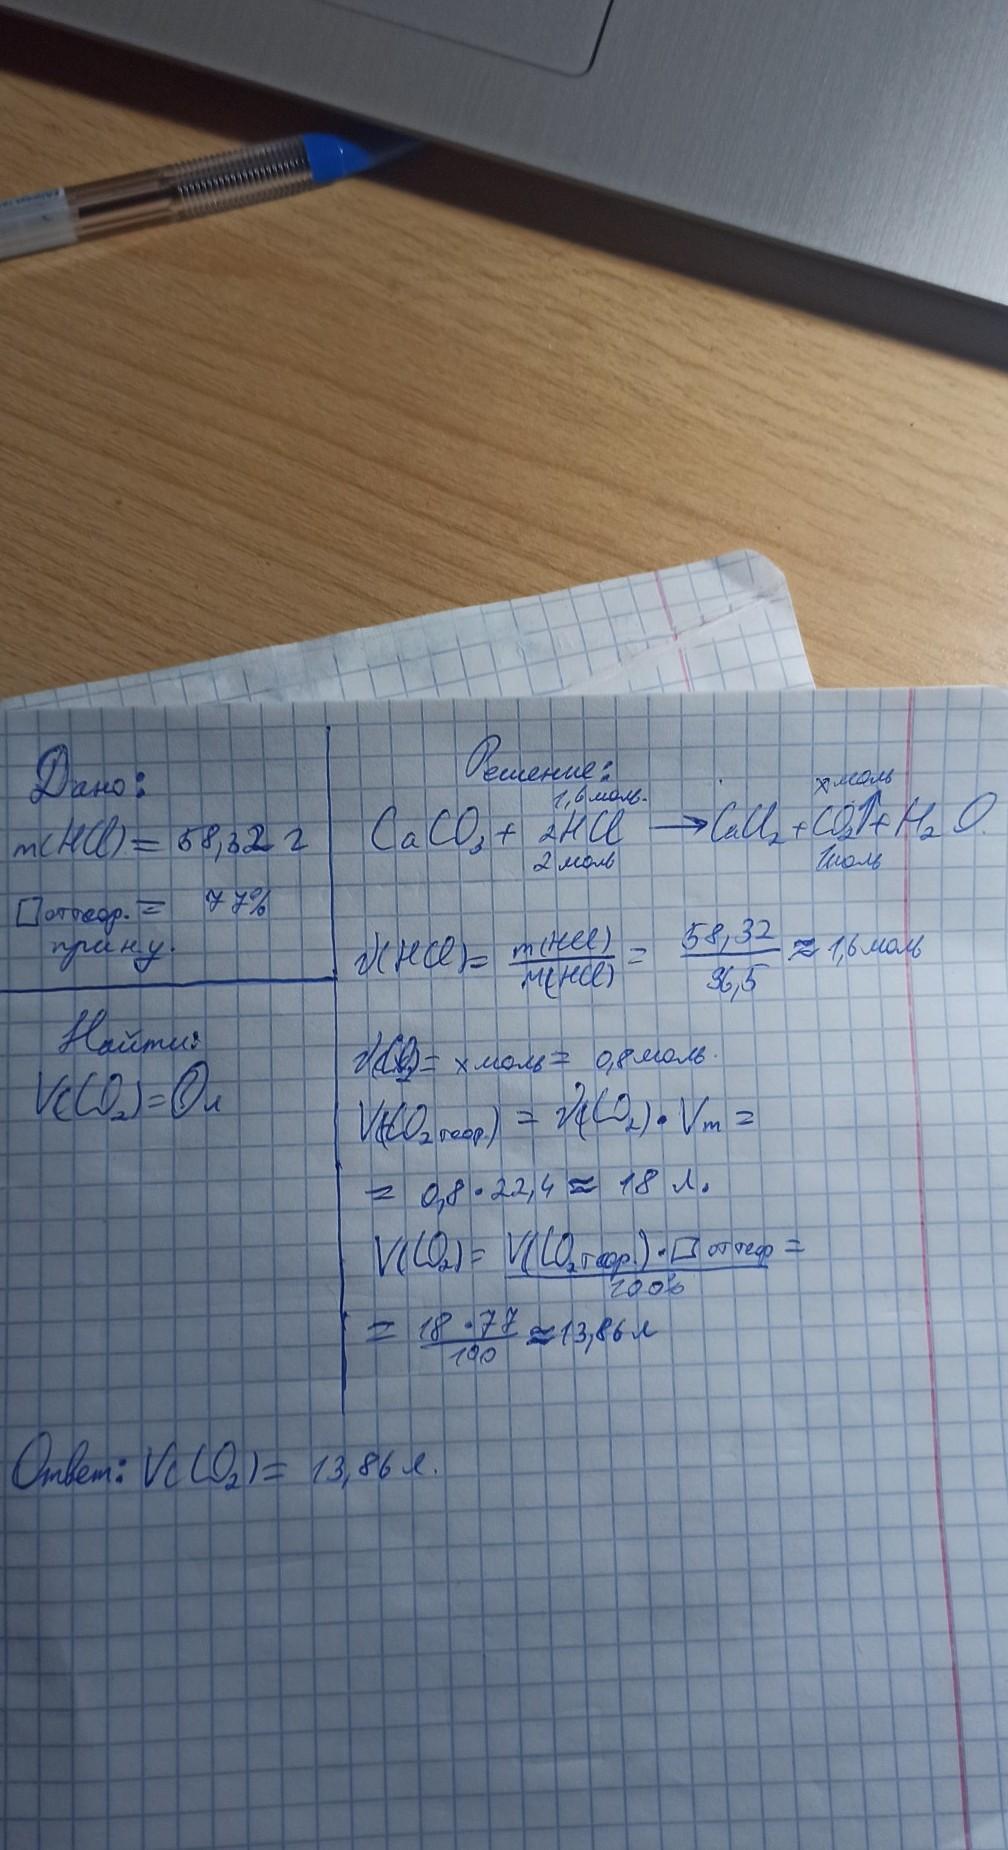 Дано:
m(HCl) = 58,32 г
□ от теор. = 77%
принц.
Найти:
V(CO₂) = 0 л
Решение:
1,6 моль. x моль
CaCO₃ + 2HCl → CaCl₂ + CO₂↑ + H₂O.
2 моль 1 моль
ν(HCl) = m(HCl)/M(HCl) = 58,32/36,5 ≈ 1,6 моль
ν(CO₂) = x моль = 0,8 моль.
V(CO₂ теор.) = ν(CO₂) · Vm =
= 0,8 · 22,4 ≈ 18 л.
V(CO₂) = V(CO₂ теор.) · □ от теор/100% =
= 18 · 77/100 ≈ 13,86 л
Ответ: V(CO₂) = 13,86 л.